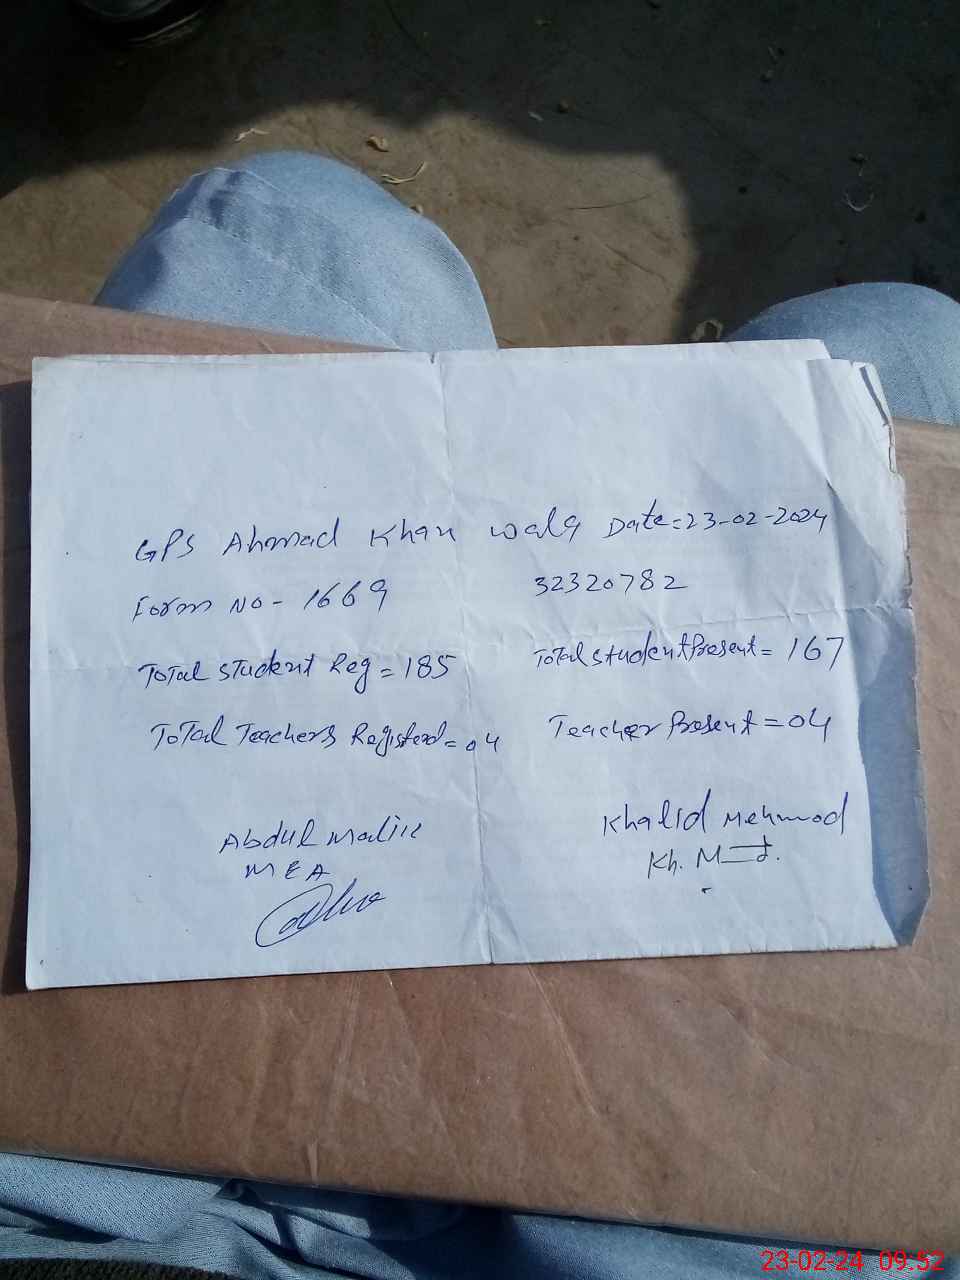 GPS Ahmad Khan wala Date=23-02-2024
Form No- 1669 32320782
Total Student Reg = 185 Total student Present = 167
Total Teachers Registerd = 04 Teacher Present = 04
Abdul Malik Khalid Mehmood
MEA Kh. M
23-02-24 09:52